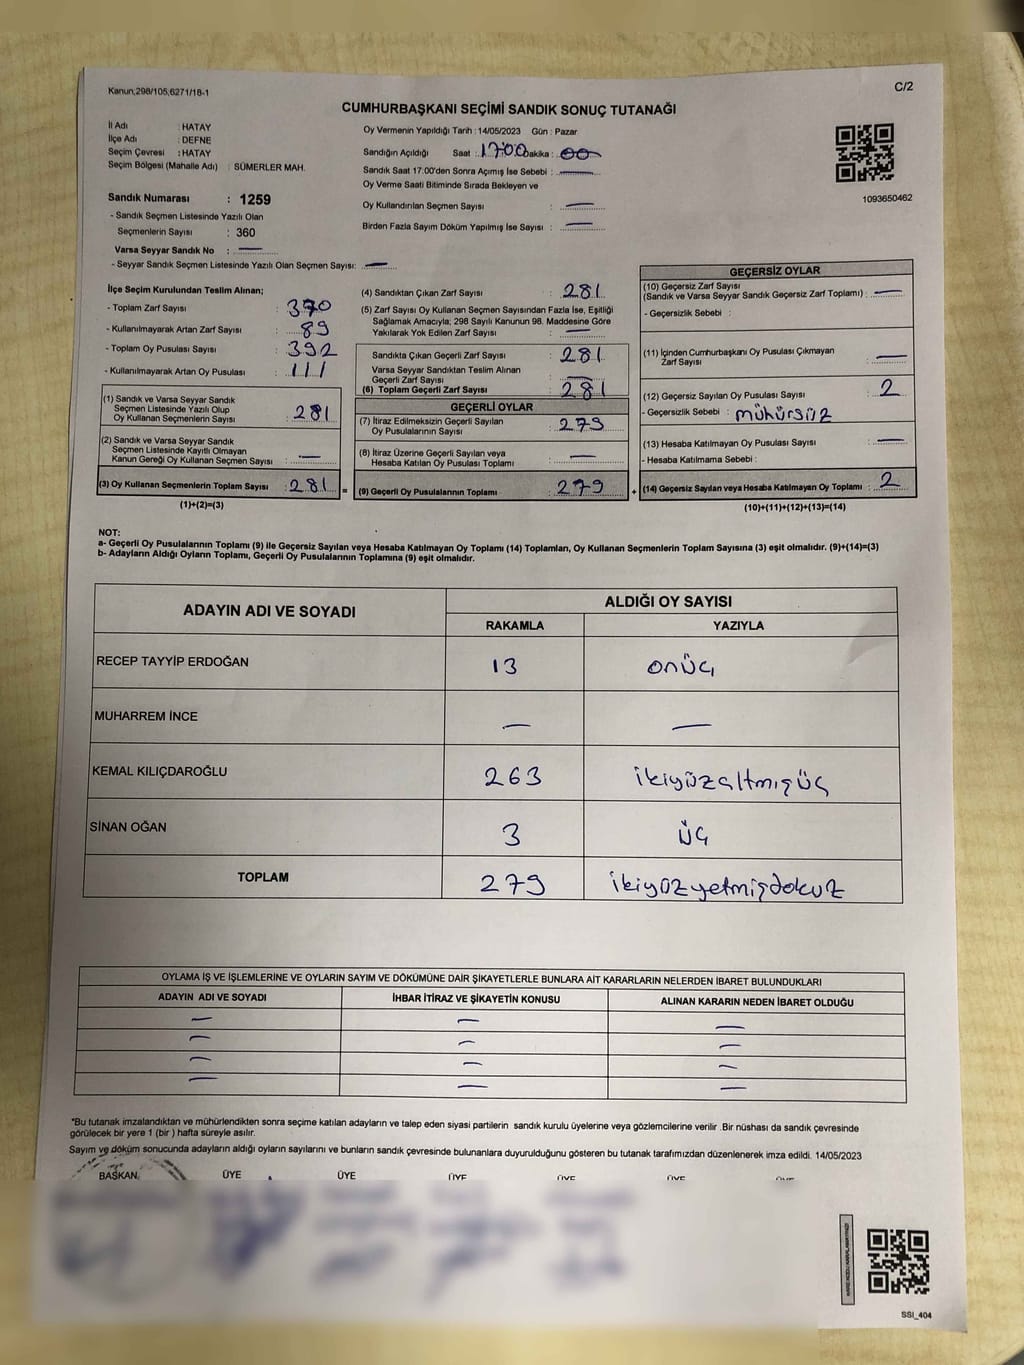 Kanun,298/105,6271/18-1
C/2
CUMHURBAŞKANI SEÇİMİ SANDIK SONUÇ TUTANAĞI
İl Adı : HATAY
İlçe Adı : DEFNE
Seçim Çevresi : HATAY
Seçim Bölgesi (Mahalle Adı) : SÜMERLER MAH.
Sandık Numarası : 1259
- Sandık Seçmen Listesinde Yazılı Olan
Seçmenlerin Sayısı : 360
Varsa Seyyar Sandık No : —
- Seyyar Sandık Seçmen Listesinde Yazılı Olan Seçmen Sayısı: —
Oy Vermenin Yapıldığı Tarih : 14/05/2023 Gün : Pazar
Sandığın Açıldığı Saat : 17:00 Dakika : 00
Sandık Saat 17.00'den Sonra Açımış İse Sebebi : —
Oy Verme Saati Bitiminde Sırada Bekleyen ve
Oy Kullandırılan Seçmen Sayısı : —
Birden Fazla Sayım Döküm Yapılmış İse Sayısı : —
1093650462
İlçe Seçim Kurulundan Teslim Alınan;
- Toplam Zarf Sayısı : 370
- Kullanılmayarak Artan Zarf Sayısı : 89
- Toplam Oy Pusulası Sayısı : 392
- Kullanılmayarak Artan Oy Pusulası : 111
(1) Sandık ve Varsa Seyyar Sandık
Seçmen Listesinde Yazılı Olup
Oy Kullanan Seçmenlerin Sayısı : 281
(2) Sandık ve Varsa Seyyar Sandık
Seçmen Listesinde Kayıtlı Olmayan
Kanun Gereği Oy Kullanan Seçmen Sayısı : —
(3) Oy Kullanan Seçmenlerin Toplam Sayısı : 281 =
(1)+(2)=(3)
(4) Sandıktan Çıkan Zarf Sayısı : 281
(5) Zarf Sayısı Oy Kullanan Seçmen Sayısından Fazla İse, Eşitliği
Sağlamak Amacıyla; 298 Sayılı Kanunun 98. Maddesine Göre
Yakılarak Yok Edilen Zarf Sayısı : —
Sandıkta Çıkan Geçerli Zarf Sayısı : 281
Varsa Seyyar Sandıktan Teslim Alınan
Geçerli Zarf Sayısı : —
(6) Toplam Geçerli Zarf Sayısı : 281
GEÇERLİ OYLAR
(7) İtiraz Edilmeksizin Geçerli Sayılan
Oy Pusulalarının Sayısı : 279
(8) İtiraz Üzerine Geçerli Sayılan veya
Hesaba Katılan Oy Pusulası Toplamı : —
(9) Geçerli Oy Pusulalarının Toplamı : 279 +
GEÇERSİZ OYLAR
(10) Geçersiz Zarf Sayısı
(Sandık ve Varsa Seyyar Sandık Geçersiz Zarf Toplamı) : —
- Geçersizlik Sebebi :
(11) İçinden Cumhurbaşkanı Oy Pusulası Çıkmayan
Zarf Sayısı : —
(12) Geçersiz Sayılan Oy Pusulası Sayısı : 2
- Geçersizlik Sebebi : mühürsüz
(13) Hesaba Katılmayan Oy Pusulası Sayısı : —
- Hesaba Katılmama Sebebi :
(14) Geçersiz Sayılan veya Hesaba Katılmayan Oy Toplamı : 2
(10)+(11)+(12)+(13)=(14)
NOT:
a- Geçerli Oy Pusulalarının Toplamı (9) ile Geçersiz Sayılan veya Hesaba Katılmayan Oy Toplamı (14) Toplamları, Oy Kullanan Seçmenlerin Toplam Sayısına (3) eşit olmalıdır. (9)+(14)=(3)
b- Adayların Aldığı Oyların Toplamı, Geçerli Oy Pusulalarının Toplamına (9) eşit olmalıdır.
ADAYIN ADI VE SOYADI
ALDIĞI OY SAYISI
RAKAMLA YAZIYLA
RECEP TAYYİP ERDOĞAN 13 onüç
MUHARREM İNCE — —
KEMAL KILIÇDAROĞLU 263 ikiyüzaltmışüç
SİNAN OĞAN 3 üç
TOPLAM 279 ikiyüzyetmişdokuz
OYLAMA İŞ VE İŞLEMLERİNE VE OYLARIN SAYIM VE DÖKÜMÜNE DAİR ŞİKAYETLERLE BUNLARA AİT KARARLARIN NELERDEN İBARET BULUNDUKLARI
ADAYIN ADI VE SOYADI İHBAR İTİRAZ VE ŞİKAYETİN KONUSU ALINAN KARARIN NEDEN İBARET OLDUĞU
— — —
— — —
— — —
— — —
*Bu tutanak imzalandıktan ve mühürlendikten sonra seçime katılan adayların ve talep eden siyasi partilerin sandık kurulu üyelerine veya gözlemcilerine verilir .Bir nüshası da sandık çevresinde
görülecek bir yere 1 (bir ) hafta süreyle asılır.
Sayım ve döküm sonucunda adayların aldığı oyların sayılarını ve bunların sandık çevresinde bulunanlara duyurulduğunu gösteren bu tutanak tarafımızdan düzenlenerek imza edildi. 14/05/2023
BAŞKAN ÜYE ÜYE ÜYE ÜYE ÜYE ÜYE
SSI_404